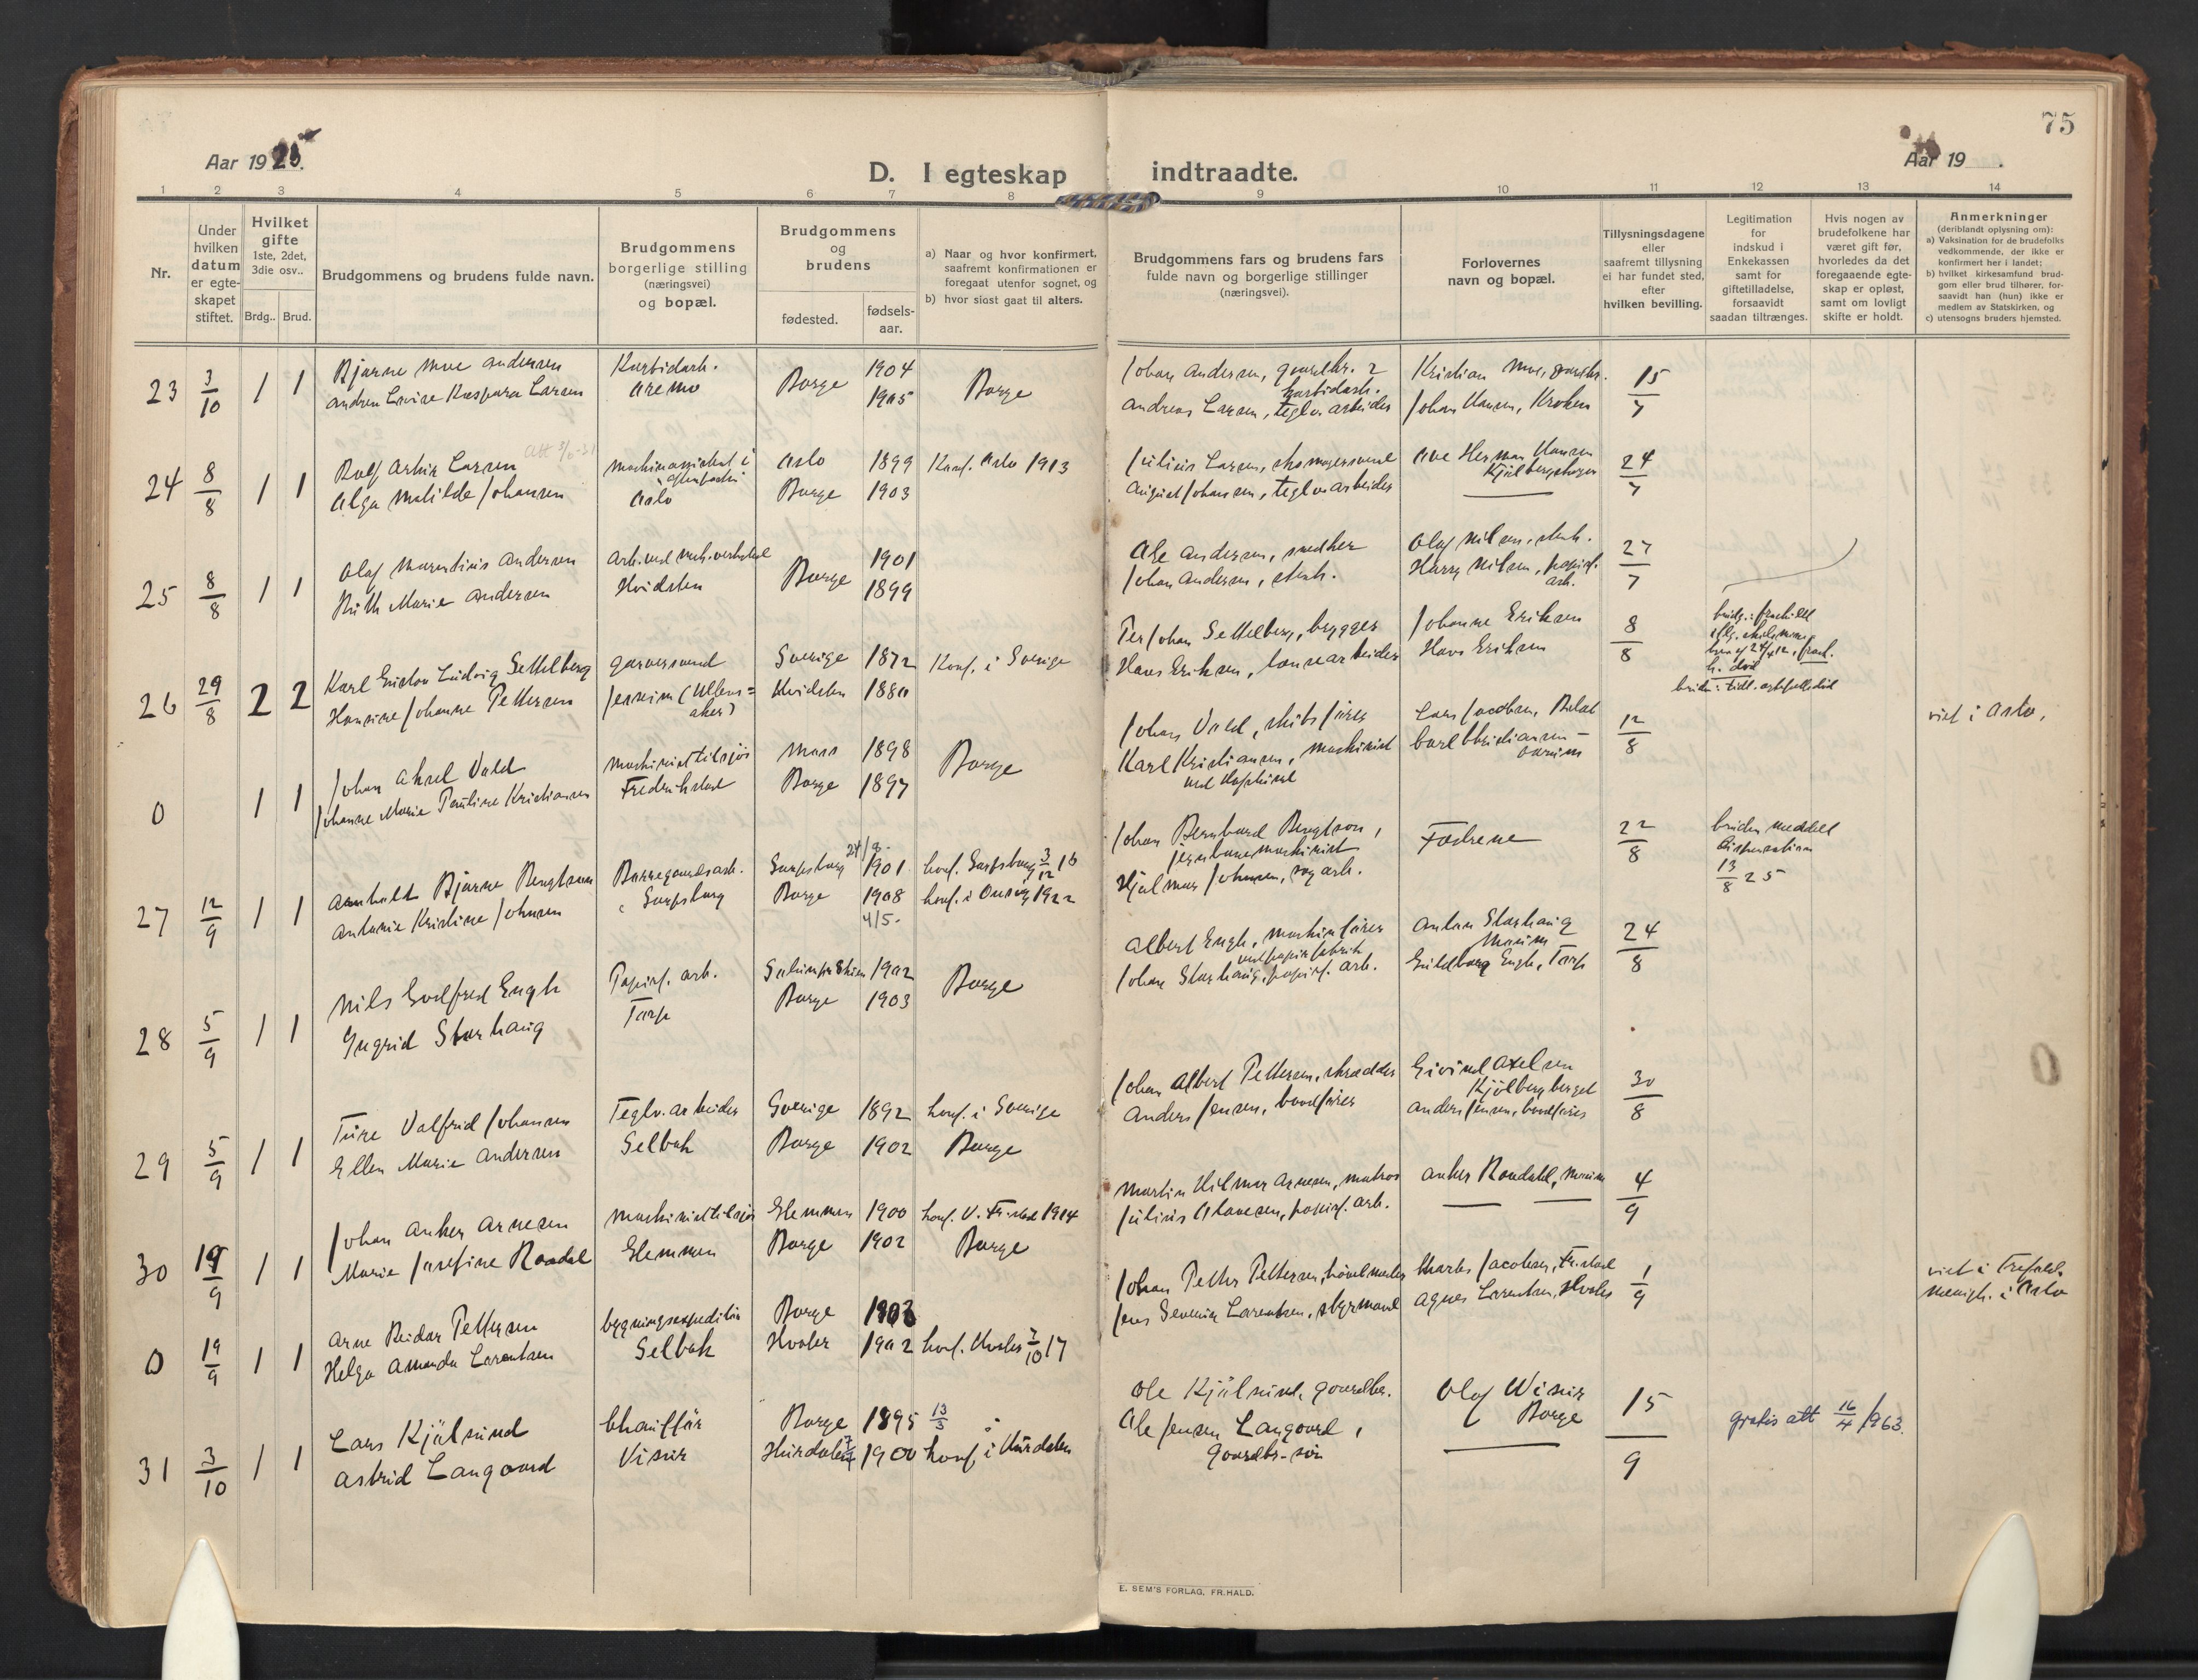 75
Aar 1925.
Aar 19 .
D. I egteskap indtraadte.
1 2 3 4 5 6 7 8 9 10 11 12 13 14
Nr.
Under hvilken datum er egte-skapet stiftet.
Hvilket gifte 1ste, 2det, 3die osv..
Brdg.. Brud.
Brudgommens og brudens fulde navn.
Brudgommens borgerlige stilling (næringsvei) og bopæl.
Brudgommens og brudens
fødested.
fødsels-aar.
a) Naar og hvor konfirmert, saafremt konfirmationen er foregaat utenfor sognet, og
b) hvor sidst gaat til alters.
Brudgommens fars og brudens fars fulde navn og borgerlige stillinger (næringsvei).
Forlovernes navn og bopæl.
Tillysningsdagene eller saafremt tillysning ei har fundet sted, efter hvilken bevilling.
Legitimation for indskud i Enkekassen samt for giftetilladelse, forsaavidt saadan tiltrænges.
Hvis nogen av brudefolkene har været gift før, hvorledes da det foregaaende egte-skap er opløst, samt om lovligt skifte er holdt.
Anmerkninger
(deriblandt oplysning om):
a) Vaksination for de brudefolks vedkommende, der ikke er konfirmert her i landet;
b) hvilket kirkesamfund brud-gom eller brud tilhører, for-saavidt han (hun) ikke er medlem av Statskirken, og
c) utensogns bruders hjemsted.
23 3/10 1 1 Bjarne Moe Andersen Karbidarb. Borge 1904 Borge Johan Andersen, gaardbr. Kristian Moe, 15/7
Andrea Lovise Kaspara Larsen Aremo 1905 karbidarb. Andreas Larsen, teglv.arbeider Johan Hansen, Kroken
24 8/8 1 1 Rolf Artur Larsen Oslo 1899 Konf. Oslo 1913 Julius Larsen, skomagersvend Ove Herman Hansen 24/7
Olga Matilde Johansen Oslo Borge 1903 August Johansen, teglv.arbeider
25 8/8 1 1 Olaf Marentius Andersen arb. ved mek. verksted Borge 1901 Ole Andersen, Olaf Nilsen, 27/7
Ruth Marie Andersen Hvidsten 1899 Johan Andersen, Harry Nilsen, papirf. arb.
26 29/8 2 2 Karl Gustav Ludvig Settelberg garversvend Sverige 1872 Konf. i Sverige Per Johan Settelberg, brygger Johanne Eriksen 8/8
Hansine Johanne Pettersen Jessheim (Ullens=aker) Hvidsten 1880 Hans Eriksen, Hans Eriksen
0 1 1 Johan Aksel Vold maskinist tilsjøs Moss 1898 Borge Johan Vold, skibsfører Lars Jacobsen, 12/8 viet i Oslo.
Johanne Marie Pauline Kristiansen Fredrikstad Borge 1897 Karl Kristiansen, maskinist Carl Christiansen
27 12/9 1 1 Bjarne Bengtson Borregaardsarb. Sarpsborg 1901 konf. Sarpsborg 3/12 16 Johan Bernhard Bengtson, jernbanemaskinist Fædrene 22/8 bruden meddelt dispensation 13/8 25
Antonie Kristine Johnsen Sarpsborg Borge 1908 4/5. konf. i Onsøy 1922 Hjalmar Johnsen, sagarb.
28 5/9 1 1 Nils Godfred Engh Papirf. arb. 1902 Borge Albert Engh, maskinfører ved papirfabrik Anton Storhaug 24/8
Ingrid Storhaug Torp Borge 1903 Johan Storhaug, papirf. arb. Guldborg Engh, Torp
29 5/9 1 1 Ture Valfrid Johansen Teglv. arbeider Sverige 1892 konf. i Sverige Johan Albert Pettersen, skrædder Eivind Axelsen Kjølbergberget 30/8
Ellen Marie Andersen Selbak Borge 1902 Borge Anders Jensen, baadfører Anders Jensen, baadfører
30 19/9 1 1 Johan Anker Arnesen maskinist tilsjøs Glemmen 1900 konf. V. Fr.stad 1914 Martin Hilmar Arnesen, matros Anker Roadahl, 4/9
Marie Josefine Roadal Glemmen Borge 1902 Borge Julius Olavesen, papirf. arb.
0 19/9 1 1 Arne Reidar Pettersen bygningsexpeditør Borge 1903 Johan Petter Pettersen, Charles Jacobsen, Fr.stad 1/9 viet i Trefold. menigh. i Oslo
Helga Amanda Larentsen Selbak Hvaler 1902 konf. Hvaler 7/10 17 Jens Severin Larentsen, styrmand Agnes Larentsen, Hvaler
31 3/10 1 1 Lars Kjølsund Chauffør Borge 1895 13/3 Ole Kjølsund, gaardbr. Olaf Visur Borge 15/9 gratis att 16/4 1963.
Astrid Langaard Visur Hurdalen 1900 konf. i Hurdalen Ole Jensen Langaard, gaardbr.
E. SEM'S FORLAG, FR.HALD.